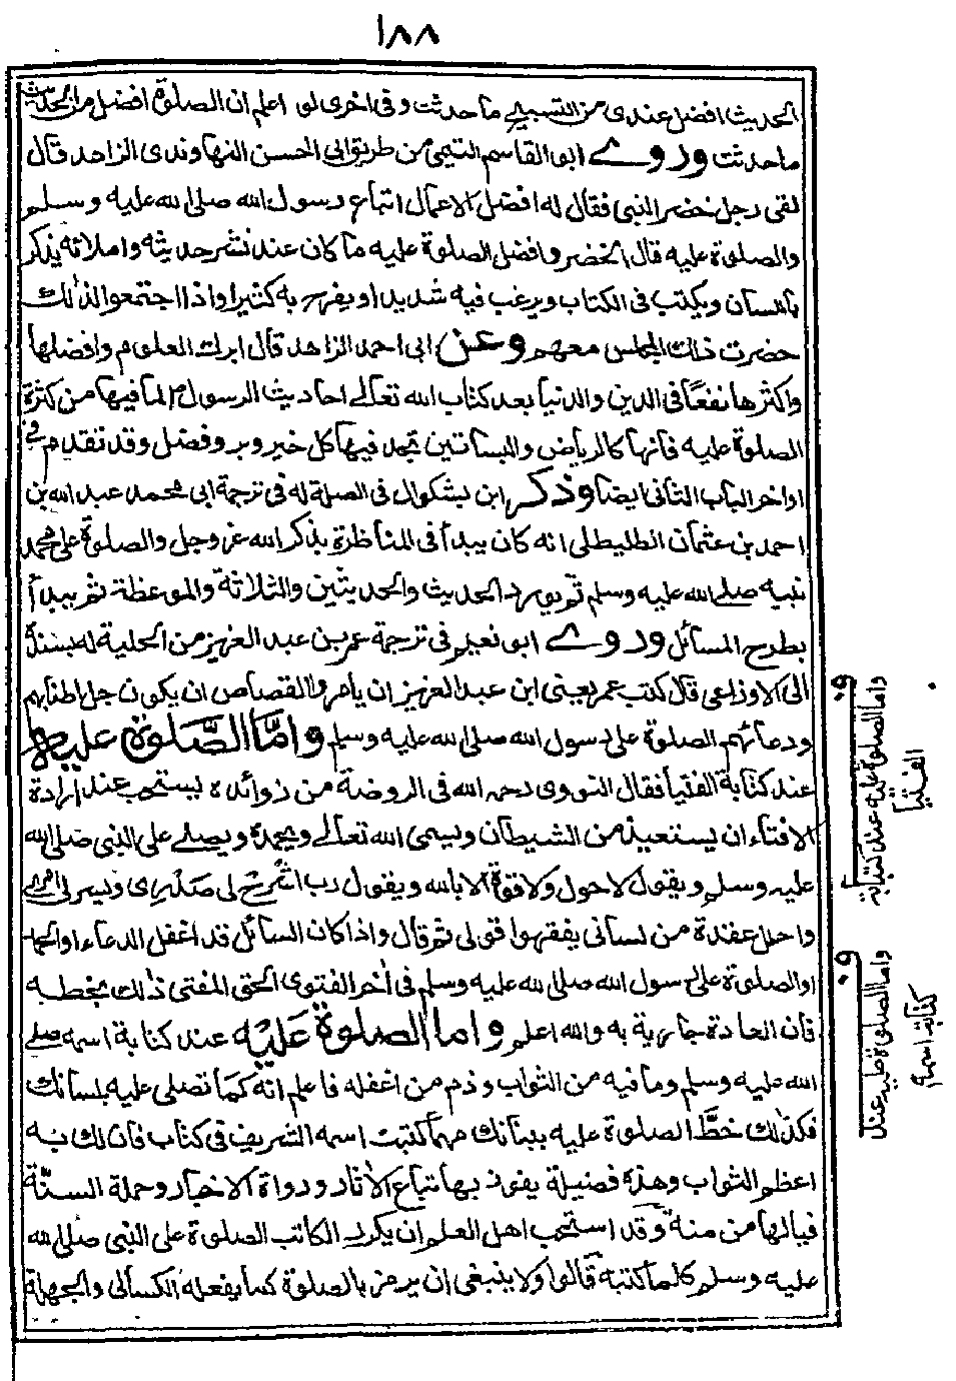 ١٨٨
الحديث افضل عندى من التسبيح ما حدثت وفى اخرى لو اعلم ان الصلوة افضل من الحديث
ما حدثت وروى ابو القاسم التيمى من طريق ابى الحسن النهاوندى الزاهد قال
لقى رجل خضر النبى فقال له افضل الاعمال اتباع رسول الله صلى الله عليه وسلم
والصلوة عليه قال الخضر وافضل الصلوة عليه ما كان عند نشر حديثه واملائه يذكر
باللسان ويكتب فى الكتاب ويرغب فيه شديدا ويفرح به كثيرا واذا اجتمعوا لذلك
حضرت ذلك المجلس معهم وعن ابى احمد الزاهد قال ابرك العلوم وافضلها
واكثرها نفعا فى الدين والدنيا بعد كتاب الله تعالى احاديث الرسول لما فيها من كثرة
الصلوة عليه فانها كالرياض والبساتين تجد فيها كل خير وبر وفضل وقد تقدم فى
اواخر الباب الثانى ايضا وذكر ابن بشكوال فى الصلة له فى ترجمة ابى محمد عبد الله بن
احمد بن عثمان الطليطلى انه كان يبدأ فى المناظرة بذكر الله عز وجل والصلوة على محمد
نبيه صلى الله عليه وسلم ثم يورد الحديث والحديثين والثلاثة والموعظة ثم يبدأ
بطرح المسائل وروى ابو نعيم فى ترجمة عمر بن عبد العزيز من الحلية له بسنده
الى الاوزاعى قال كتب عمر يعنى ابن عبد العزيز ان يامروا القصاص ان يكون جل اطنابهم
ودعائهم الصلوة على رسول الله صلى الله عليه وسلم وامّا الصّلوة عليه
عند كتابة الفتيا فقال النووى رحمه الله فى الروضة من زوائده يستحب عند ارادة
الافتاء ان يستعيذ من الشيطان ويسمى الله تعالى ويحمده ويصلى على النبى صلى الله
عليه وسلم ويقول لا حول ولا قوة الا بالله ويقول رب اشرح لى صدرى ويسر لى امرى
واحلل عقدة من لسانى يفقهوا قولى ثم قال واذا كان السائل قد اغفل الدعاء او الحمد
او الصلوة على رسول الله صلى الله عليه وسلم فى اخر الفتوى الحق المفتى ذلك بخطه
فان العادة جارية به والله اعلم واما الصلوة عليه عند كتابة اسمه صلى
الله عليه وسلم وما فيه من الثواب وذم من اغفله فاعلم انه كما تصلى عليه بلسانك
فكذلك خطّ الصلوة عليه ببنانك مهما كتبت اسمه الشريف فى كتاب فان لك به
اعظم الثواب وهذه فضيلة يفوز بها تباع الاثار ورواة الاخبار وحملة السنّة
فيالها من منة وقد استحب اهل العلم ان يكرر الكاتب الصلوة على النبى صلى الله
عليه وسلم كلما كتبه قالوا ولا ينبغى ان يرمز بالصلوة كما يفعله الكسالى والجهلة
واما الصلوة عليه عند كتابة
الفتيا
واما الصلوة عليه عند
كتابة اسمه